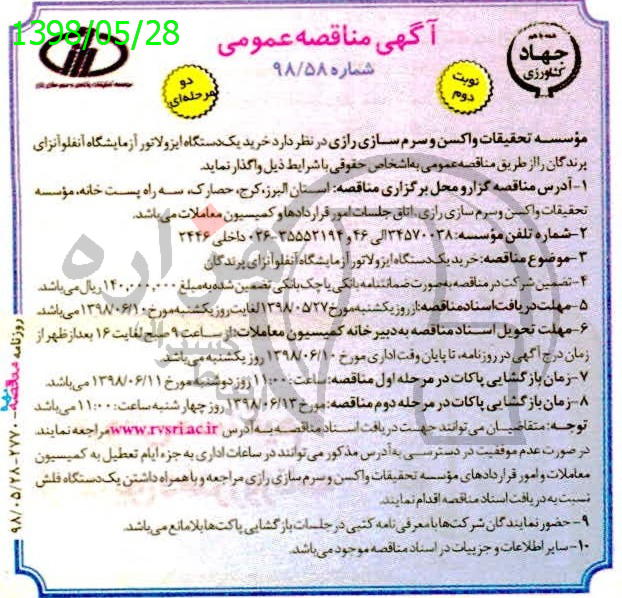 1398/05/28
آگهی مناقصه عمومی
شماره ۹۸/۵۸
همه با هم
جهاد
کشاورزی
نوبت
دوم
دو
مرحله‌ای
مؤسسه تحقیقات واکسن و سرم سازی رازی در نظر دارد خرید یک دستگاه ایزولاتور آزمایشگاه آنفلوآنزای
پرندگان را از طریق مناقصه عمومی به اشخاص حقوقی با شرایط ذیل واگذار نماید.
۱-آدرس مناقصه گزار و محل برگزاری مناقصه: استان البرز، کرج، حصارک، سه راه پست خانه، مؤسسه
تحقیقات واکسن و سرم سازی رازی، اتاق جلسات امور قراردادها و کمیسیون معاملات می‌باشد.
۲-شماره تلفن مؤسسه: ۳۴۵۷۰۰۳۸ الی ۴۶ و ۳۵۵۵۲۱۹۳-۰۲۶ داخلی ۲۴۴۶
۳-موضوع مناقصه: خرید یک دستگاه ایزولاتور آزمایشگاه آنفلوآنزای پرندگان
۴-تضمین شرکت در مناقصه به صورت ضمانتنامه بانکی یا چک بانکی تضمین شده به مبلغ ۱۴۰,۰۰۰,۰۰۰ ریال می‌باشد.
۵-مهلت دریافت اسناد مناقصه: از روز یکشنبه مورخ ۱۳۹۸/۰۵/۲۷ لغایت روز یکشنبه مورخ ۱۳۹۸/۰۶/۱۰ می‌باشد.
۶-مهلت تحویل اسناد مناقصه به دبیرخانه کمیسیون معاملات: از ساعت ۹ صبح لغایت ۱۶ بعدازظهر از
زمان درج آگهی در روزنامه، تا پایان وقت اداری مورخ ۱۳۹۸/۰۶/۱۰ روز یکشنبه می‌باشد.
۷-زمان بازگشایی پاکات در مرحله اول مناقصه: ساعت: ۱۱:۰۰ روز دوشنبه مورخ ۱۳۹۸/۰۶/۱۱ می‌باشد.
۸-زمان بازگشایی پاکات در مرحله دوم مناقصه: مورخ ۱۳۹۸/۰۶/۱۳ روز چهارشنبه ساعت: ۱۱:۰۰ می‌باشد
توجه: متقاضیان می‌توانند جهت دریافت اسناد مناقصه به آدرس www.rvsri.ac.ir مراجعه نمایند.
در صورت عدم موفقیت در دسترسی به آدرس مذکور می‌توانند در ساعات اداری به جزء ایام تعطیل به کمیسیون
معاملات و امور قراردادهای مؤسسه تحقیقات واکسن و سرم سازی رازی مراجعه و با همراه داشتن یک دستگاه فلش
نسبت به دریافت اسناد مناقصه اقدام نمایند.
۹-حضور نمایندگان شرکت‌ها با معرفی نامه کتبی در جلسات بازگشایی پاکت‌ها بلامانع می‌باشد.
۱۰-سایر اطلاعات و جزییات در اسناد مناقصه موجود می‌باشد.
روزنامه مناقصه ۲۷۷۰-۹۸/۰۵/۲۸
هزاره